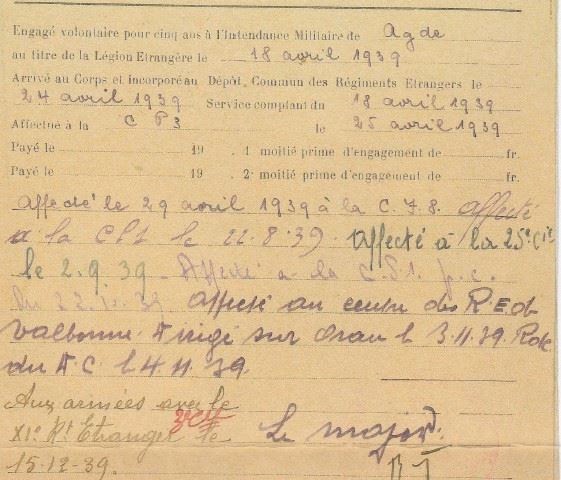 Engagé volontaire pour cinq ans à l'Intendance Militaire de Agde
au titre de la Légion Etrangère le 18 avril 1939
Arrivé au Corps et incorporé au Dépôt Commun des Régiments Etrangers le
24 avril 1939 Service comptant du 18 avril 1939
Affectué à la C P3 le 25 avril 1939
Payé le 19 . 1 moitié prime d'engagement de fr.
Payé le 19 . 2 moitié prime d'engagement de fr.
Affecté le 29 avril 1939 à la C. 7. 8. affecté
à la CP1 le 22.8.39. Affecté à la 25e Cie
le 2.9.39 - Affecté à la C.S1. p.c.
du 22. .39. affecté au centre des R.E. de
Valbonne. Dirigé sur Oran le 3.11.39. Rde
du D.C. le 4.11.39.
Aux armées avec le
XIe Rt Etranger le
15-12-39.
Le major